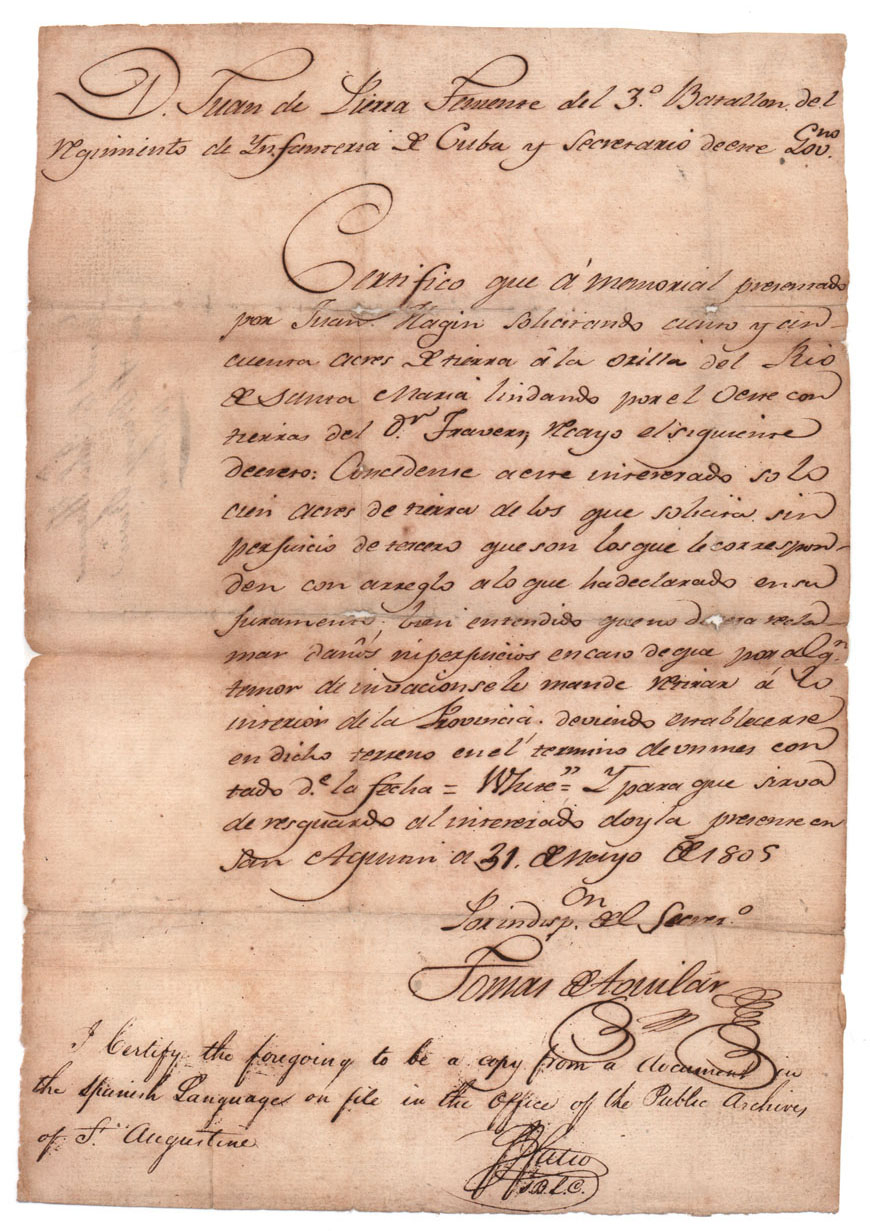 D. Juan de Pierra Teniente del 3.º Batallon del
Regimiento de Ynfanteria de Cuba y Secretario de este Gov.no
Certifico que á memorial presentado
por Juan Hagin solicitando ciento y cin-
cuenta acres de tierra â la orilla del Rio
de Santa Maria lindando por el Oeste con
tierras del D.r Travers, Recayo el siguiente
decreto: Concedense a este interesado solo
cien acres de tierra de los que solicita sin
perjuicio de tercero que son los que le correspon-
den con arreglo a lo que ha declarado en su
juramento; bien entendido que no devera recla-
mar daños ni perjuicios en caso de que por alg.n
temor de invacion se le mande retirar á lo
interior de la Provincia. deviendo establecerse
en dicho terreno en el termino de un mes con
tado d.e la fecha = White" = Y para que sirva
de resguardo al interesado doy la presente en
San Agustin a 31. de Mayo de 1805
Por indisp.on del Secret.o
Tomas de Aguilár
I Certify the foregoing to be a copy from a document in
the Spanish Language on file in the Office of the Public Archives
of St Augustine